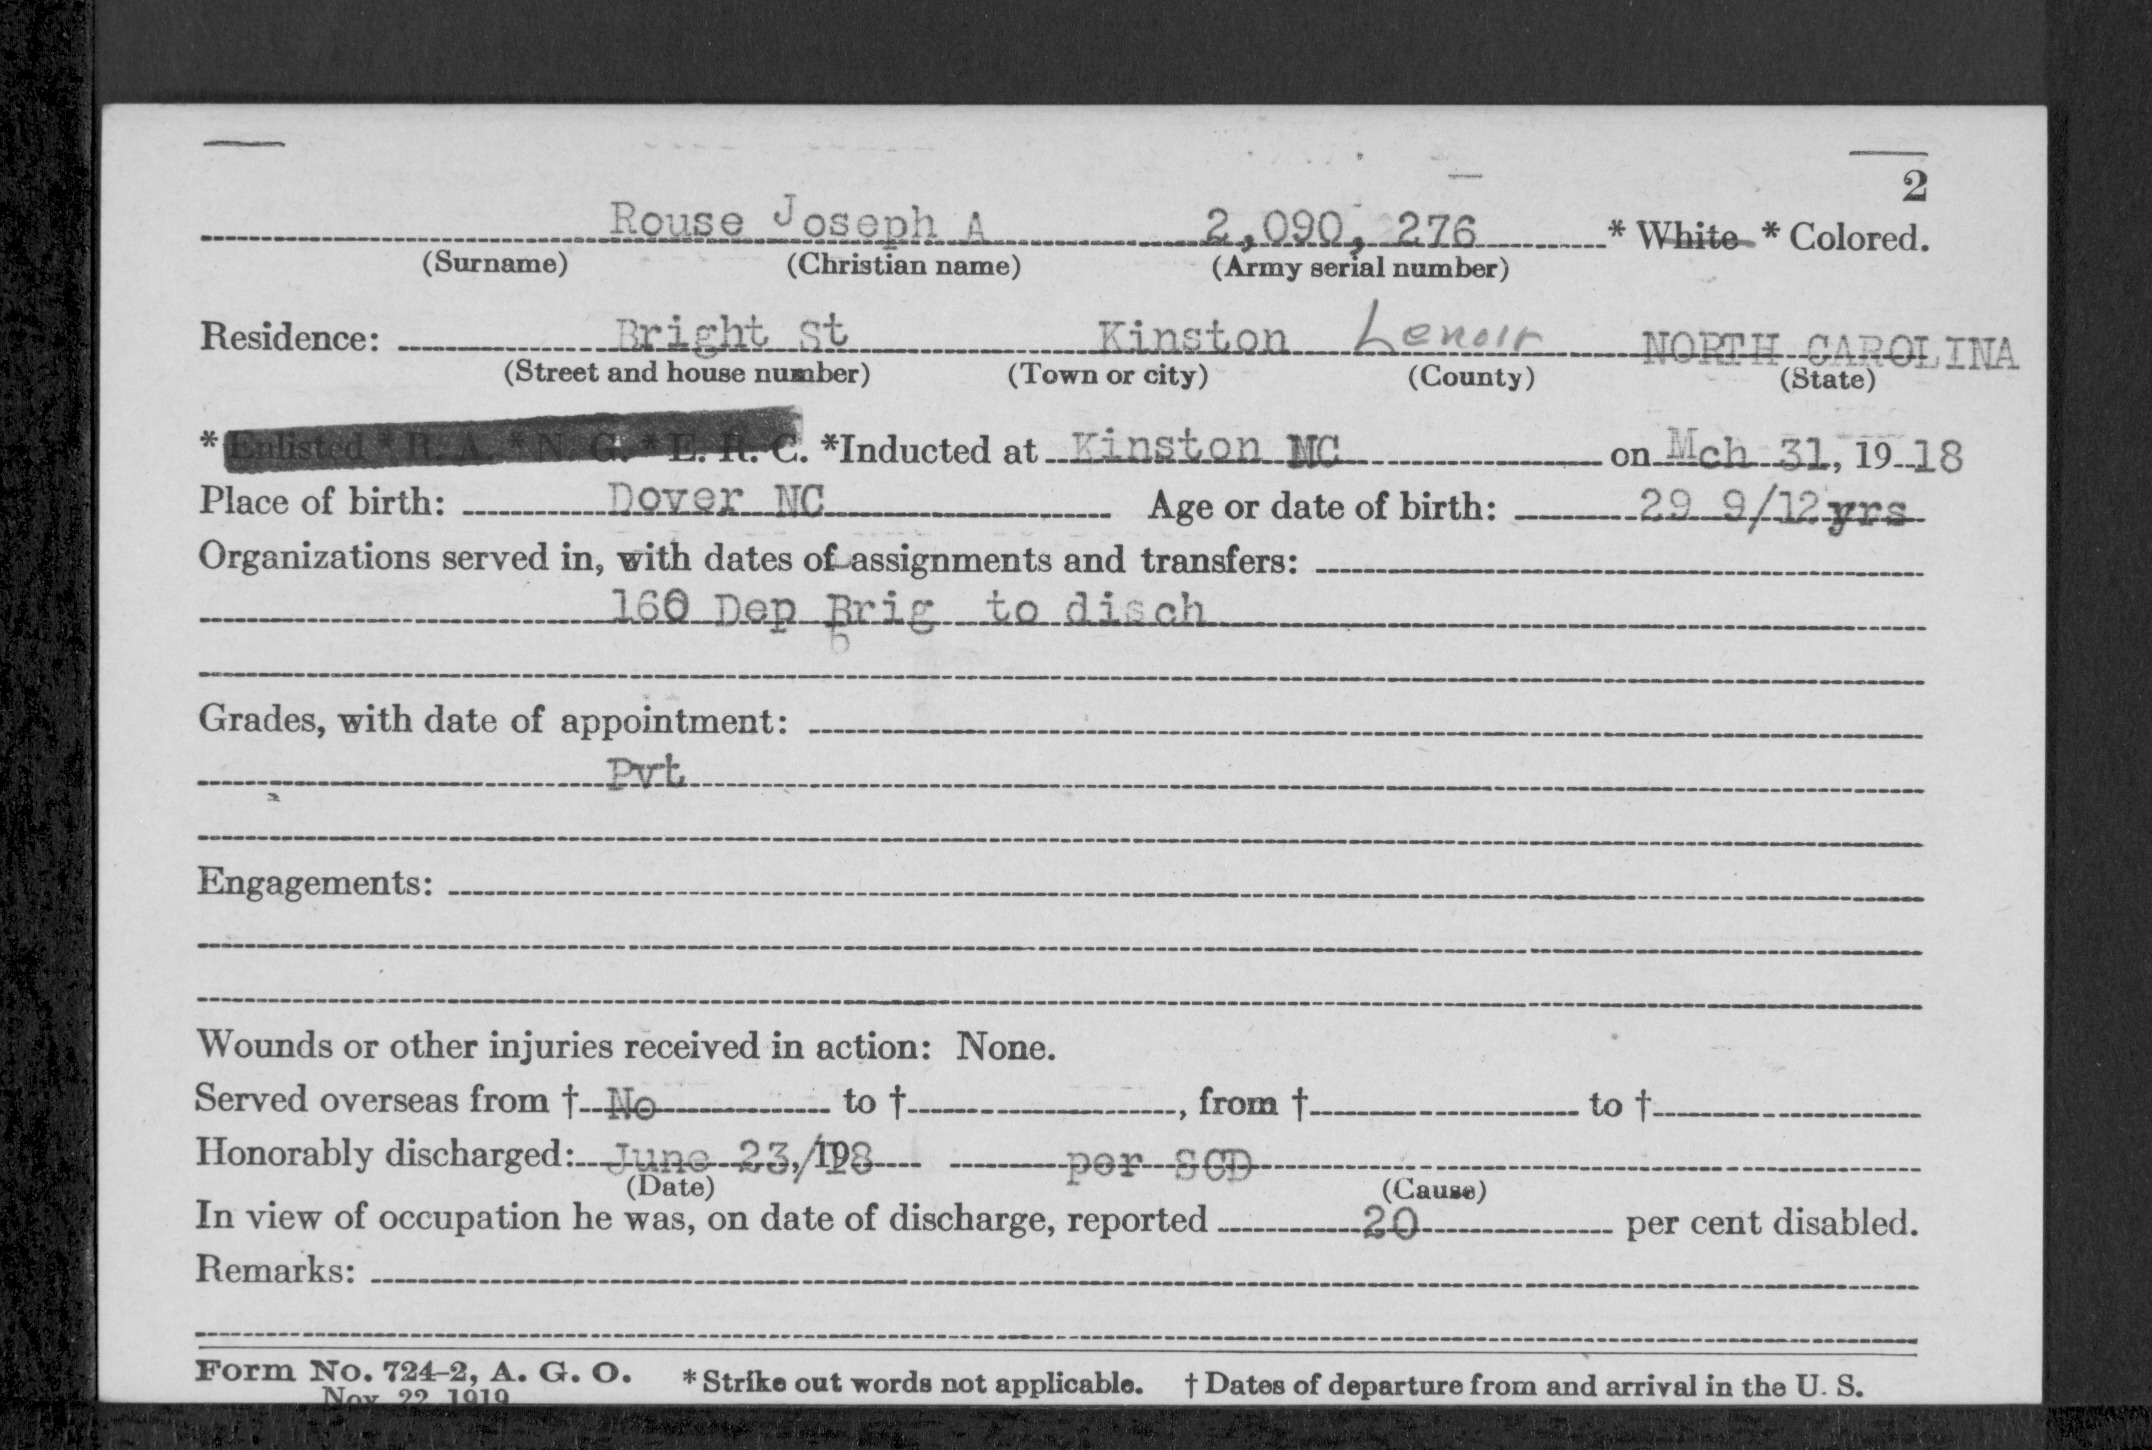 2
Rouse Joseph A 2,090,276 * White * Colored.
(Surname) (Christian name) (Army serial number)
Residence: Bright St Kinston Lenoir NORTH CAROLINA
(Street and house number) (Town or city) (County) (State)
* Enlisted * R. A. * N. G. * E. R. C. *Inducted at Kinston NC on Mch 31, 19 18
Place of birth: Dover NC Age or date of birth: 29 9/12 yrs
Organizations served in, with dates of assignments and transfers:
160 Dep Brig to disch
Grades, with date of appointment:
Pvt
Engagements:
Wounds or other injuries received in action: None.
Served overseas from † No to †, from † to †
Honorably discharged: June 23,/198 per SCD
(Date) (Cause)
In view of occupation he was, on date of discharge, reported 20 per cent disabled.
Remarks:
Form No. 724-2, A. G. O. * Strike out words not applicable. † Dates of departure from and arrival in the U. S.
Nov. 22, 1919